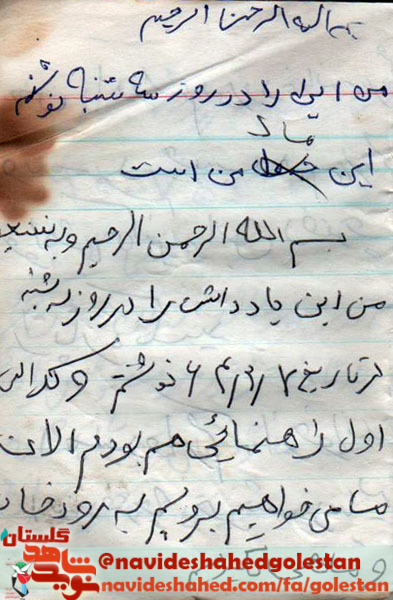 بسم الله الرحمن الرحیم
من این را در روز سه شنبه نوشتم
یاد
این من است
بسم الله الرحمن الرحیم و به نستعین
من این یادداشت را در روز شنبه
در تاریخ نوشتم و کلاس
اول راهنمائی هم بودم الان
ما می خواهیم برویم به رودخانه
گلستان
نوید شاهد
@navideshahedgolestan
navideshahed.com/fa/golestan